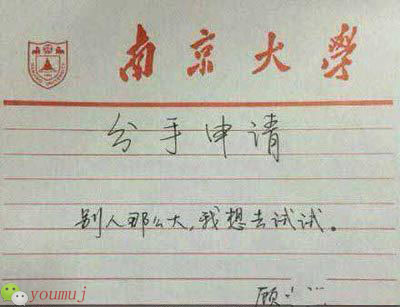 南京大学
分手申请
别人那么大,我想去试试。
顾小
youmuj